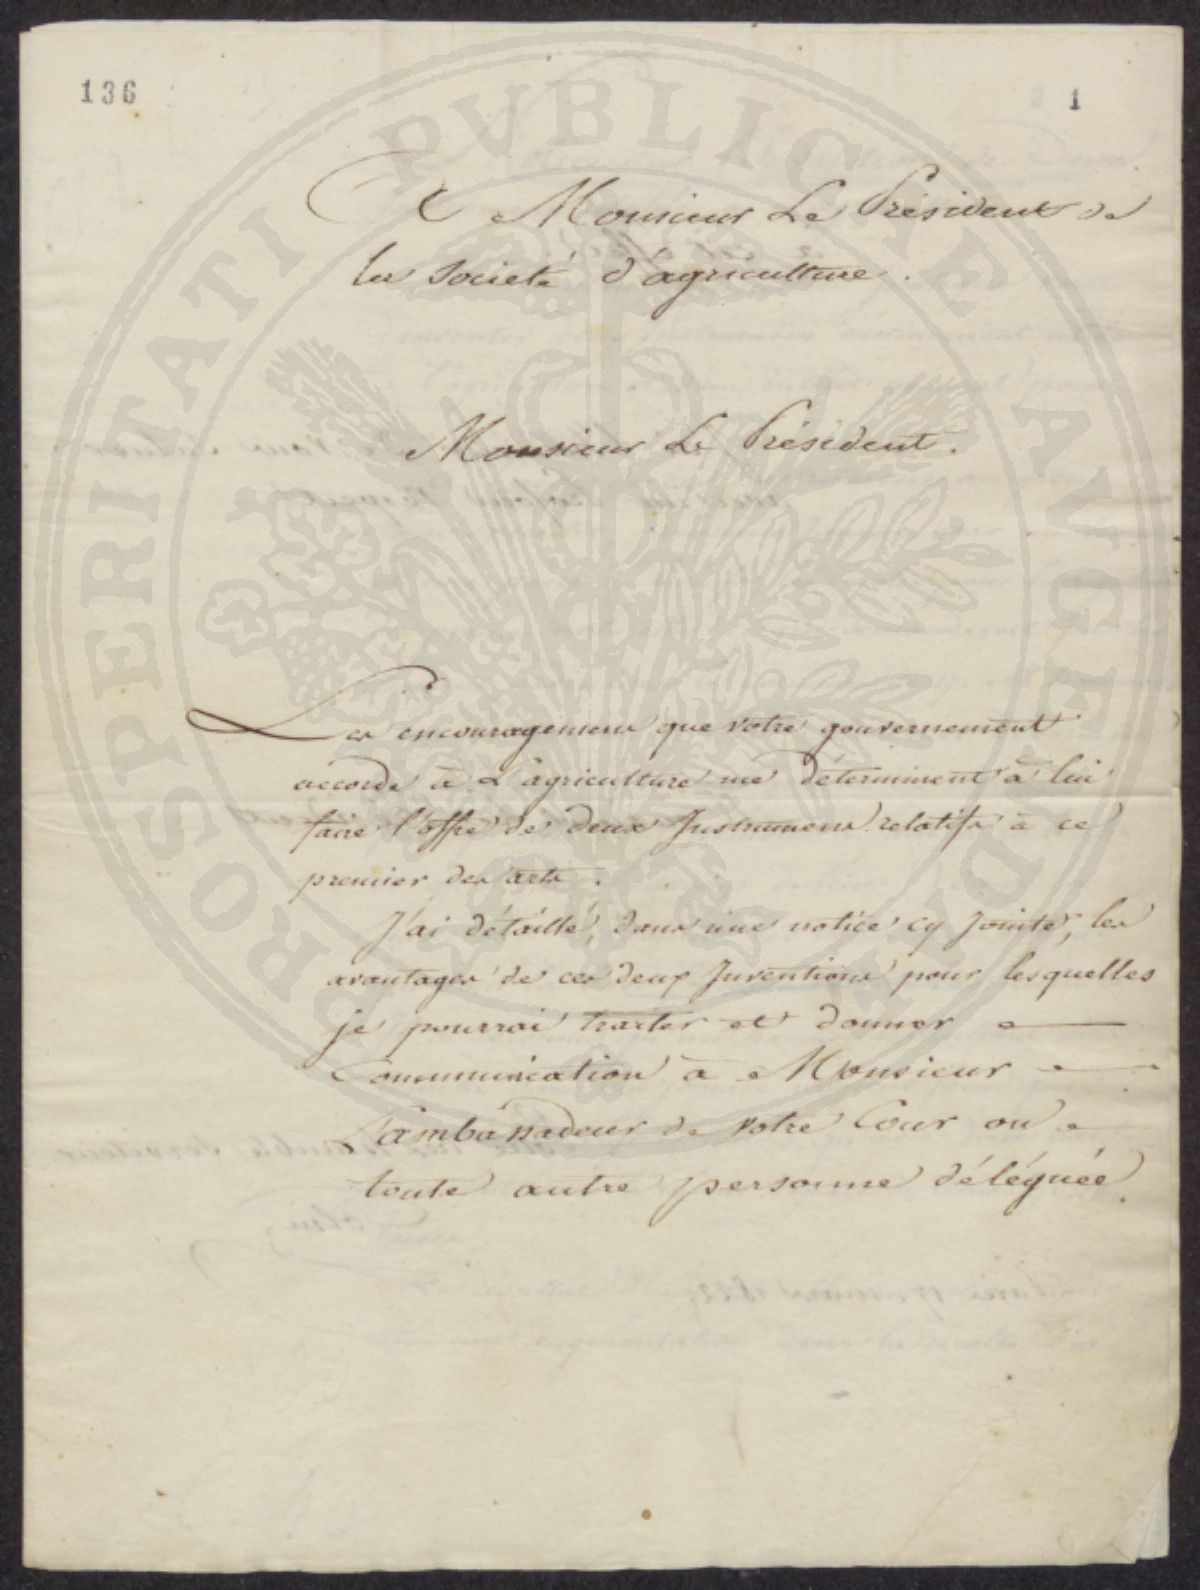 136
1
A Monsieur Le Président de
la Societé d'agriculture.
Monsieur Le Président.
Les encouragemens que votre gouvernement
accorde à L'agriculture me déterminent à lui
faire l'offre de deux Instrumens relatifs à ce
premier des arts.
J'ai détaillé, dans une notice cy Jointe, les
avantages de ces deux Inventions pour lesquelles
je pourrai traiter et donner
Communication à Monsieur
L'ambassadeur de votre Cour ou
toute autre personne déléguée.
PROSPERITATI PVBLICAE AVGENDAE